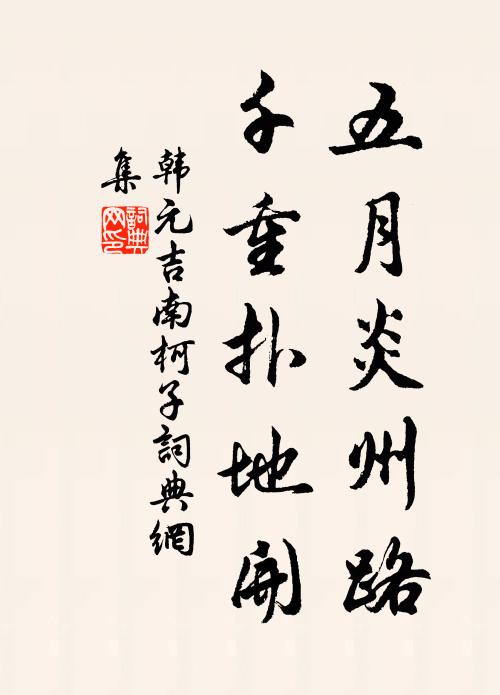 五月炎州路
千重扑地開
韩元吉南柯子詞典網
集
詞典網印